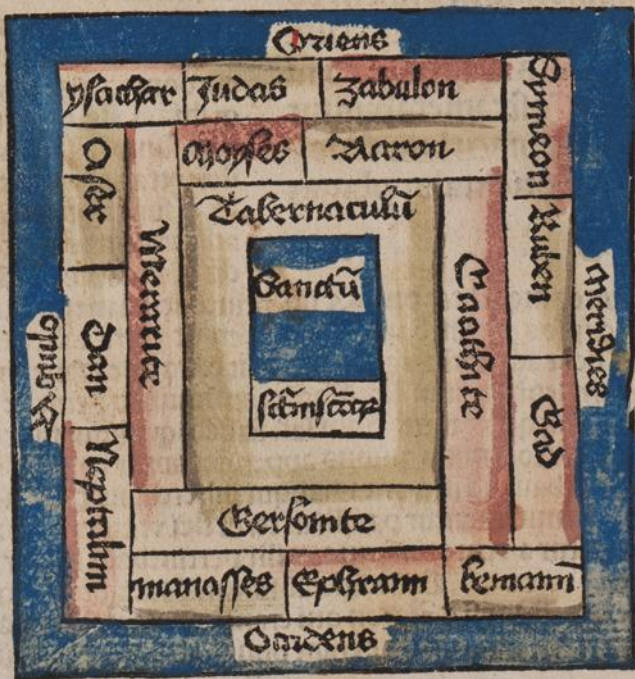 Oriens
ysachar Judas Zabulon
Symeon
Moyses Aaron
Aser
Tabernaculū
Ruben
Sanctū
Merarite
Caathite
Meridies
Aquilo
Dan
Gad
Neptalim
Gersomite
manasses Ephraim beniamī
Occidens